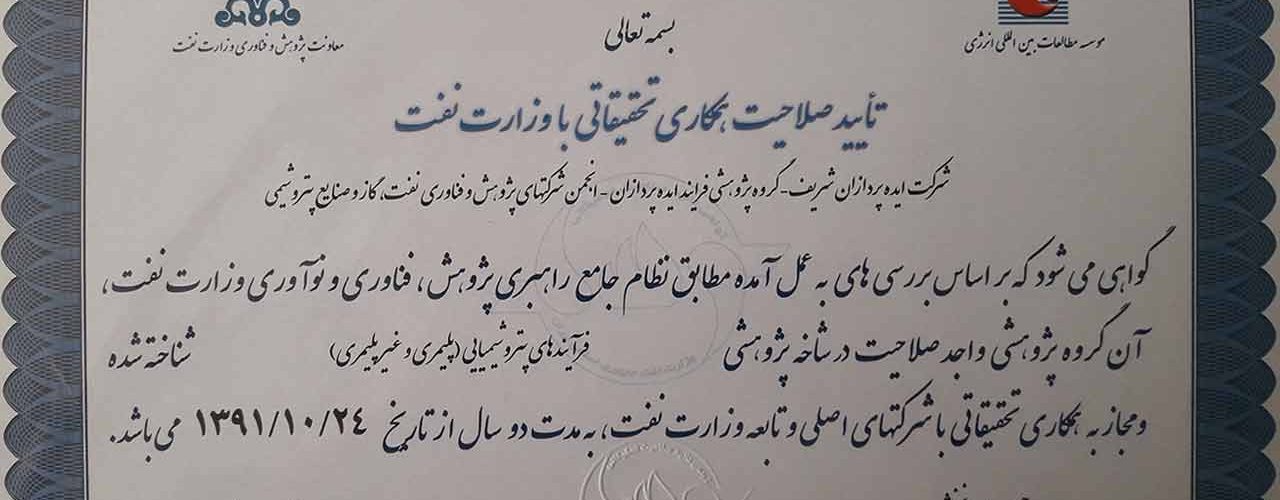 بسمه تعالی
موسسه مطالعات بین المللی انرژی
معاونت پژوهش و فناوری وزارت نفت
تأیید صلاحیت همکاری تحقیقاتی با وزارت نفت
شرکت ایده پردازان شریف - گروه پژوهشی فرایند ایده پردازان - انجمن شرکتهای پژوهش و فناوری نفت، گاز و صنایع پتروشیمی
گواهی می شود که بر اساس بررسی های به عمل آمده مطابق نظام جامع راهبری پژوهش، فناوری و نوآوری وزارت نفت،
آن گروه پژوهشی واجد صلاحیت در شاخه پژوهشی فرآیندهای پتروشیمیایی (پلیمری و غیر پلیمری) شناخته شده
و مجاز به همکاری تحقیقاتی با شرکتهای اصلی و تابعه وزارت نفت، به مدت دو سال از تاریخ ۱۳۹۱/۱۰/۲٤ می باشد.